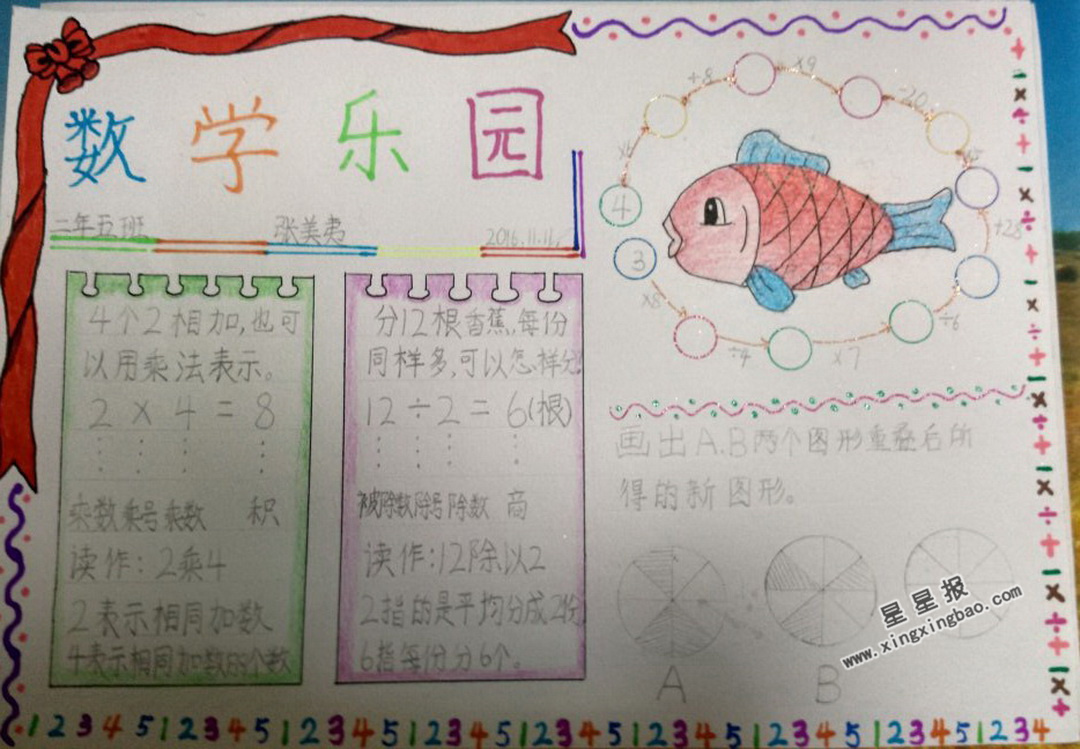 数学乐园
二年五班 张美夷 2016.11.11.
4个2相加,也可
以用乘法表示。
2 × 4 = 8
乘数 乘号 乘数 积
读作:2乘4
2表示相同加数
4表示相同加数的个数
分12根香蕉,每份
同样多,可以怎样分
12 ÷ 2 = 6(根)
被除数 除号 除数 商
读作:12除以2
2指的是平均分成2份
6指每份分6个。
+8 ×9
4
3
+28
×8 ÷4 ×7 ÷6
画出A.B两个图形重叠后所
得的新图形。
A B
星星报
www.xingxingbao.com
+ - × ÷ + - × ÷ + - × ÷ + - × ÷ + - × ÷ + - × ÷ + - ×
1 2 3 4 5 1 2 3 4 5 1 2 3 4 5 1 2 3 4 5 1 2 3 4 5 1 2 3 4 5 1 2 3 4 5 1 2 3 4